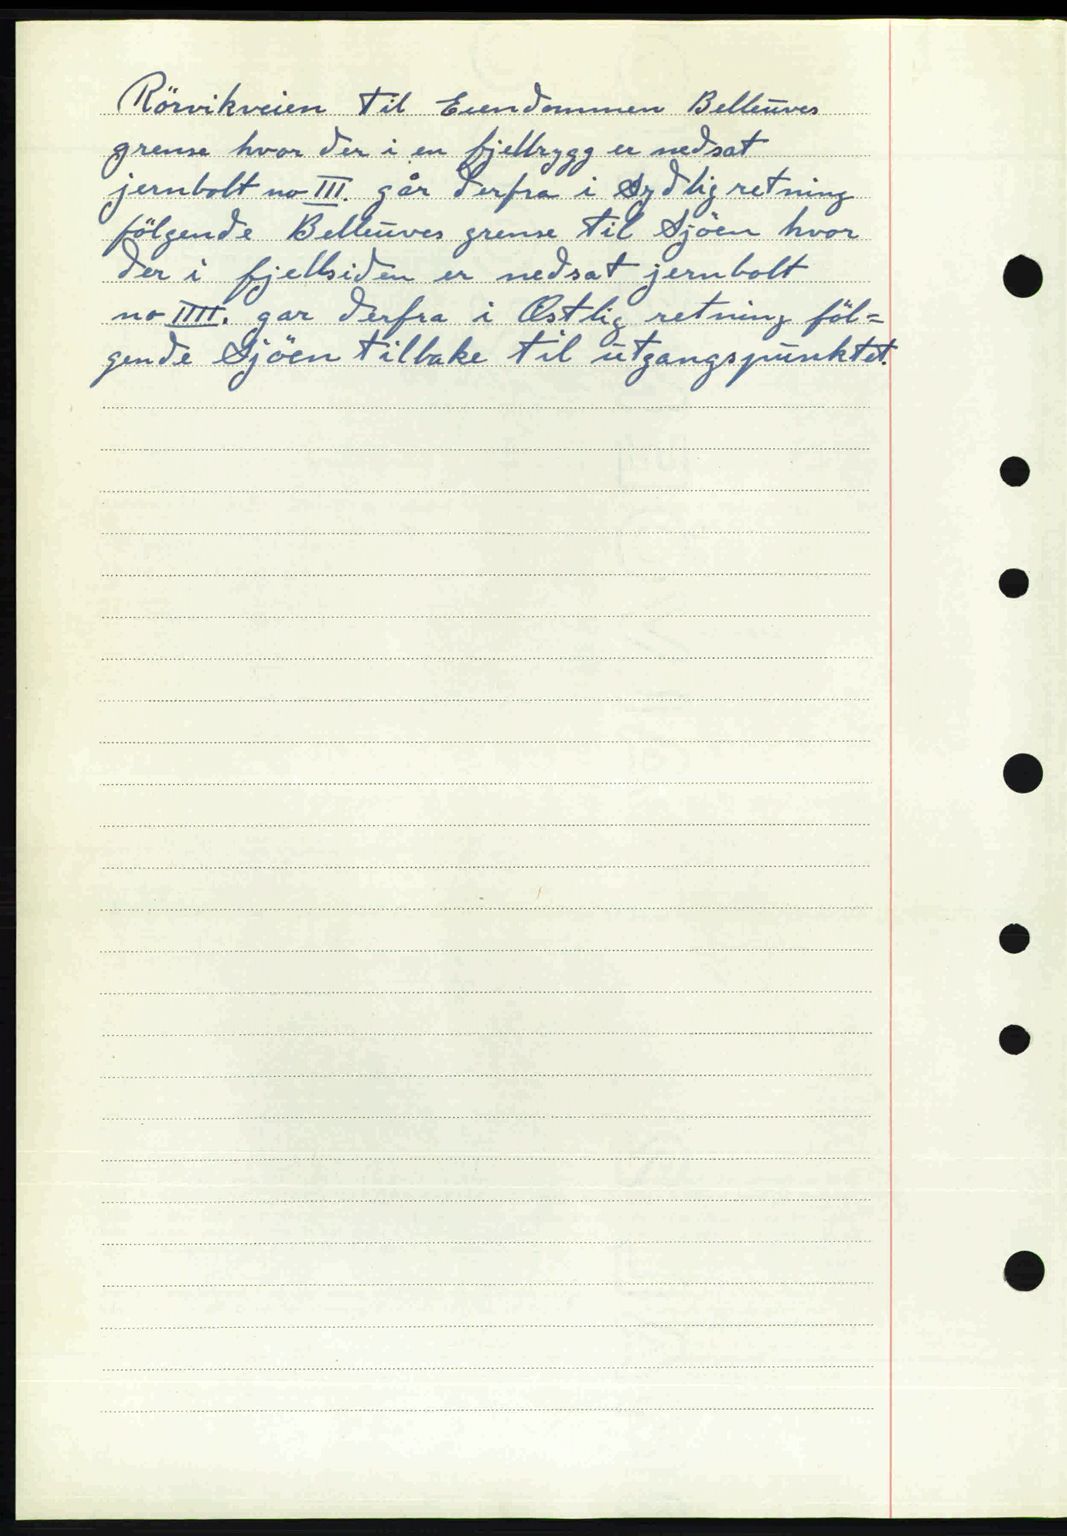 Rörvikveien til Eiendommen Belleüves
grense hvor der i en fjellrygg er nedsat
jernbolt no III. går derfra i Sydlig retning
følgende Belleüves grense til Sjöen hvor
der i fjellsiden er nedsat jernbolt
no IIII. gar derfra i Østlig retning föl=
gende Sjöen tilbake til utgangspunktet.